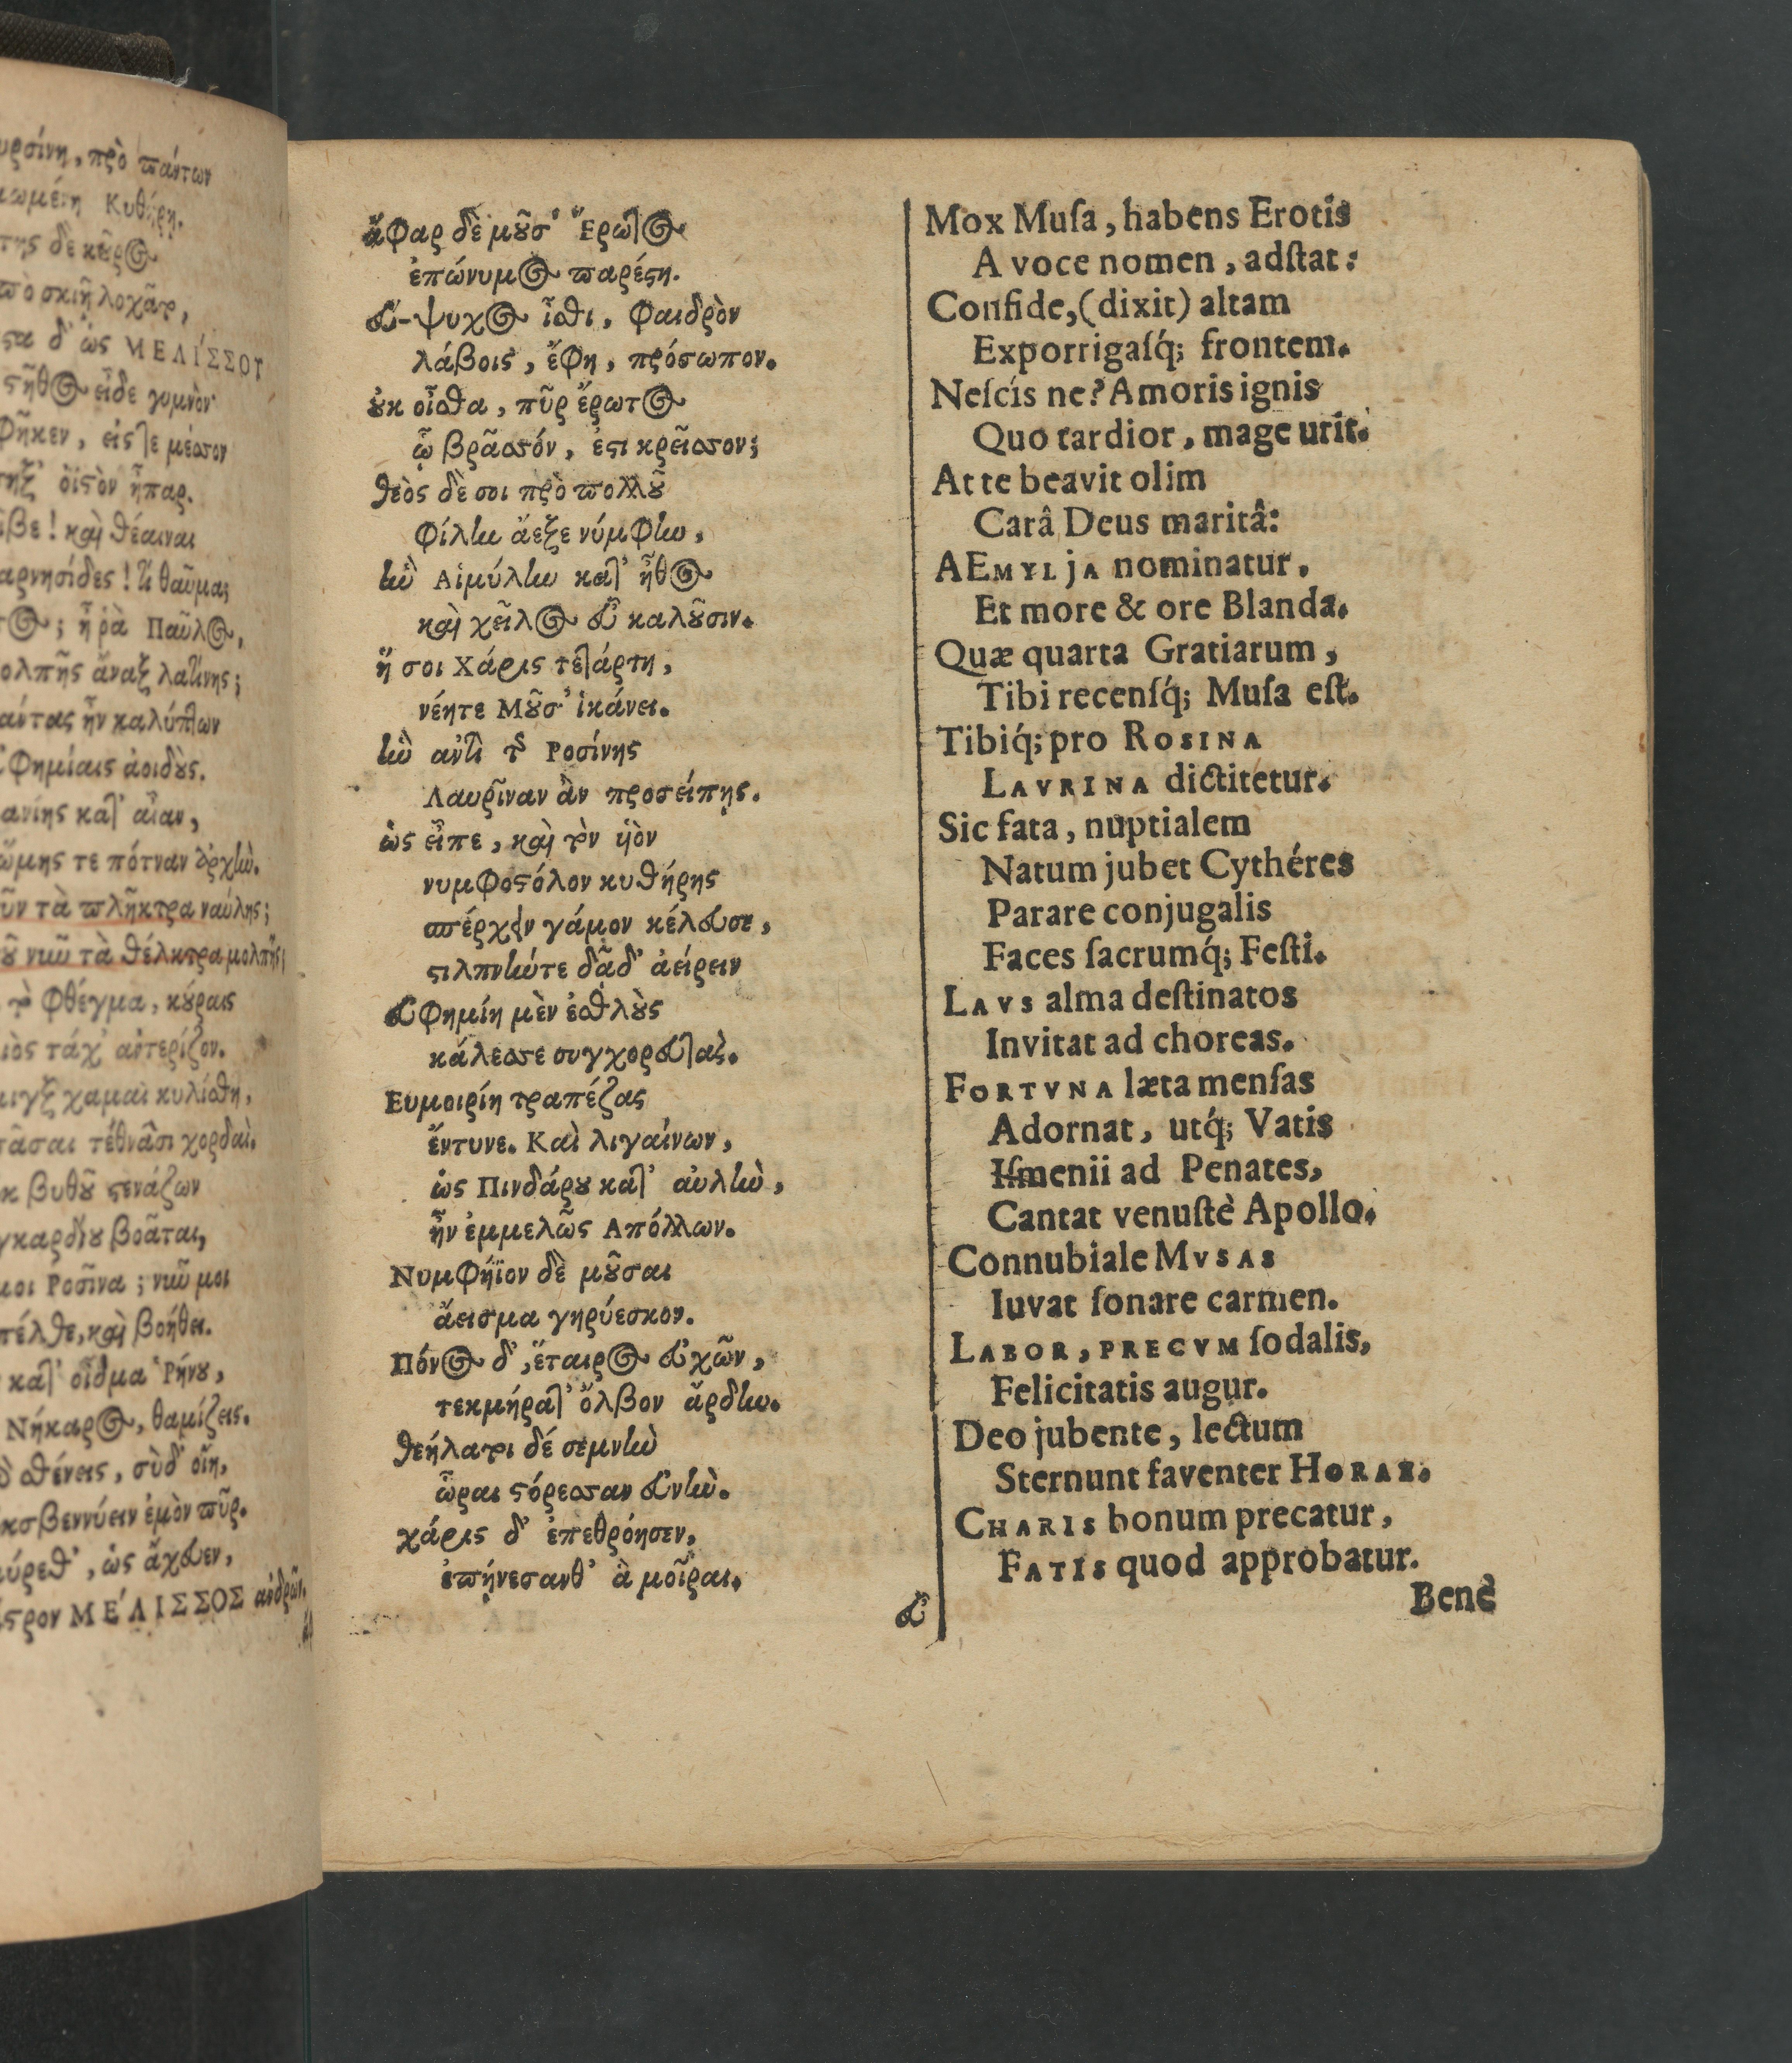 πρὸ πάντων
Κυθήρη.
δὲ κῦρος
σκιῆ λοχᾶν,
δ' ὡς ΜΕΛΙΣΣΟΥ
εἶδε γυμνὸν
εἰς τε μέσσον
ὀϊστὸν ἧπαρ.
καὶ θέαιναι
τί θαῦμα;
ἦ ῥὰ Παῦλος,
ἄναξ λατίνης;
ἦν καλύπτων
ἀοιδούς.
κατ' αἶαν,
τε πότναν ἀρχήν.
τὰ πλῆκτρα ναύλης;
νῦν τὰ θέλκτρα μολπῆς;
τὸ φθέγμα, κούραις
τάχ' ἀστερίζον.
χαμαὶ κυλίσθη,
τέθνασι χορδαὶ.
βυθοῦ στενάζων
βοᾶται,
μοι Ροσῖνα; νῦν μοι
καὶ βοήθει.
κατ' οἶδμα Ῥήνου,
Νήκαρος, θαμίζεις.
σθένεις, σὺ δ' οἴη,
ἐμὸν πῦρ.
ὡς ἄχευεν,
ΜΕΛΙΣΣΟΣ ἀνδρῶν.
ἄφαρ δὲ μοῦσ' Ἔρωτος
ἐπώνυμος παρέστη.
εὔ-ψυχος ἴσθι, φαιδρὸν
λάβοις, ἔφη, πρόσωπον.
οὐκ οἶσθα, πῦρ ἔρωτος
ᾧ βρᾶσσόν, ἐστι κρεῖσσον;
θεὸς δὲ σοι πρὸ πολλοῦ
φίλην ἄεξε νύμφην,
ἣν Αἰμύλην κατ' ἦθος
καὶ χεῖλος εὖ καλοῦσιν.
ἥ σοι Χάρις τετάρτη,
νέητε Μοῦσ' ἱκάνει.
ἣν ἀντὶ τῆς Ροσίνης
Λαυρῖναν ἂν προσείπῃς.
ὡς εἶπε, καὶ τὸν υἱὸν
νυμφοστόλον κυθήρης
σπέρχειν γάμον κέλευσε,
στιλπνήντε δᾷδ' ἀείρειν
εὐφημίη μὲν ἐσθλοὺς
κάλεσσε συγχορευτάς.
Ευμοιρίη τραπέζας
ἔντυνε. Καὶ λιγαίνων,
ὡς Πινδάρου κατ' αὐλὴν,
ἦν ἐμμελῶς Απόλλων.
Νυμφήϊον δὲ μοῦσαι
ἄεισμα γηρύεσκον.
Πόνος δ', ἕταιρος εὐχῶν,
τεκμήρατ' ὄλβον ἄρδην.
θεήλατοι δέ σεμνὴν
ὧραι στόρεσσαν εὐνὴν.
χάρις δ' ἐπεθρόησεν,
ἐπῄνεσανθ' ἃ μοῖραι.
εὖ
Mox Muſa, habens Erotis
A voce nomen, adſtat:
Confide, (dixit) altam
Exporrigaſq́; frontem.
Neſcis ne? Amoris ignis
Quo tardior, mage urit.
At te beavit olim
Carâ Deus maritâ:
AEMYLjA nominatur.
Et more & ore Blanda.
Quæ quarta Gratiarum,
Tibi recenſq́; Muſa eſt.
Tibiq́; pro ROSINA
LAVRINA dictitetur.
Sic fata, nuptialem
Natum jubet Cythéres
Parare conjugalis
Faces ſacrumq́; Feſti.
LAVS alma deſtinatos
Invitat ad choreas.
FORTVNA læta menſas
Adornat, utq́; Vatis
Iſmenii ad Penates,
Cantat venuſtè Apollo.
Connubiale MVSAS
Iuvat ſonare carmen.
LABOR, PRECVM ſodalis,
Felicitatis augur.
Deo jubente, lectum
Sternunt faventer HORAE.
CHARIS bonum precatur,
FATIS quod approbatur.
Benè